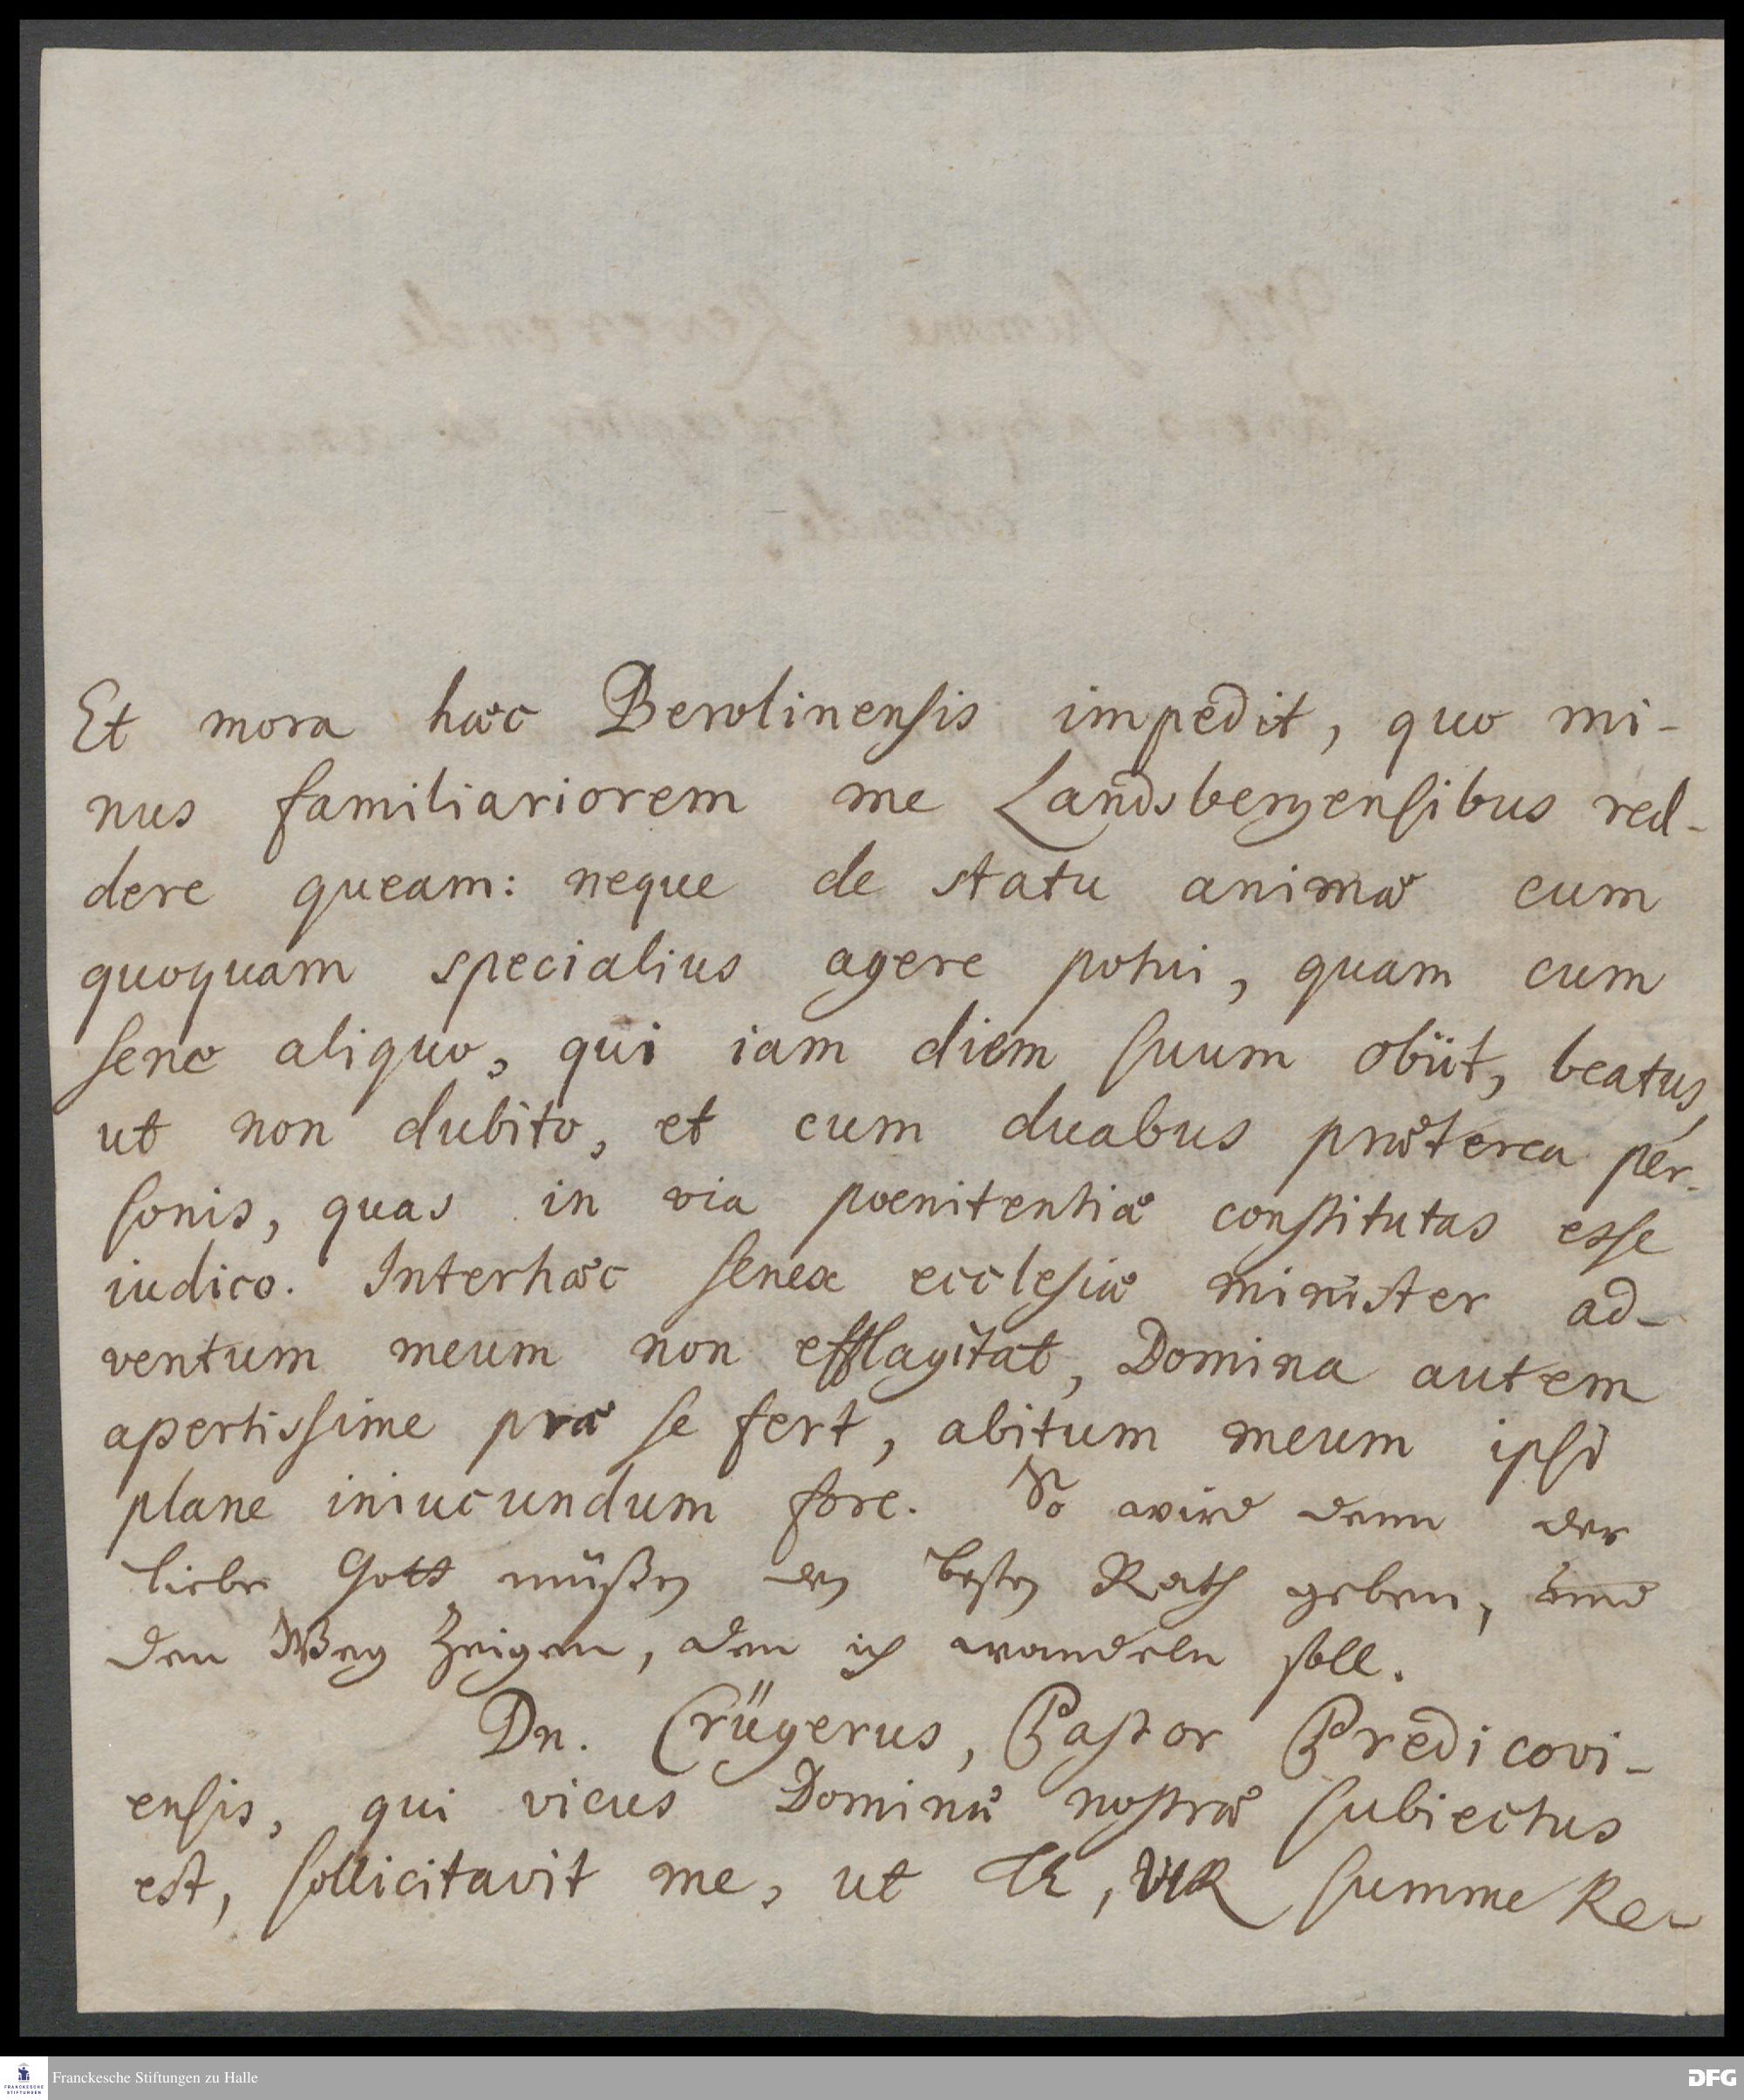 Et mora hæc Berolinensis impedit, quo mi-
nus familiariorem me Landsbergensibus red-
dere queam: neque de statu animæ cum
quoquam specialius agere potui, quam cum
sene aliquo, qui iam diem suum obiit, beatus,
ut non dubito, et cum duabus præterea per-
sonis, quas in via poenitentiæ constitutas esse
iudico. Interhæc senex ecclesiæ minister ad-
ventum meum non efflagitat, Domina autem
apertissime præ se fert, abitum meum ipsi
plane iniucundum fore. So wird denn der
liebe Gott müßen den besten Rath geben, und
den Weg zeigen, den ich wandeln soll.
Dn. Crügerus, Pastor Predicovi-
ensis, qui vicus Dominæ nostræ subiectus
est, sollicitavit me, ut Te, VIR summe Re-
Franckesche Stiftungen zu Halle
DFG
FRANCKESCHE
STIFTUNGEN